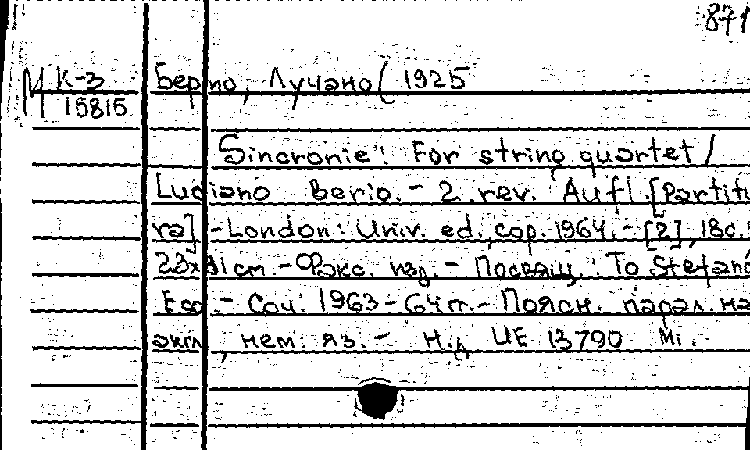 871
М К-3 Берио, Лучано (1925
15815
Sincronie": For string quartet /
Luciano Berio. - 2. rev. Aufl. [Partitu
ra] - London: Univ. ed., cop. 1964. - [2], 18c.
23x31 см. - Факс. изд. - Посвящ.: To Stefano
Eco. - Соч. 1963-64 гг. - Поясн. парал. на
англ., нем. яз. - Н.д. UE 13790 Mi.